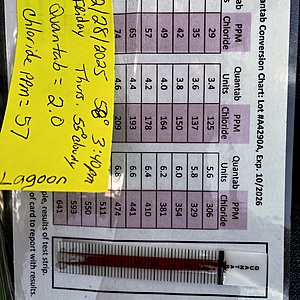 uantab Conversion Chart: Lot #A4290A, Exp. 10/2026
PPM Quantab PPM Quantab PPM
Chloride Units Chloride Units Chloride
29 3.4 125 5.6 306
35 3.6 137 5.8 329
42 3.8 150 6.0 354
49 4.0 164 6.2 381
57 4.2 178 6.4 410
65 4.4 193 6.6 441
74 4.6 209 6.8 474
511
550
593
641
ple, results of test strip.
of card to report with results.
QUANTAB
2/28/2025 58° 3:40pm
Thurs. 55° cloudy
Quantab = 2.0
Chloride ppm = 57
Lagoon